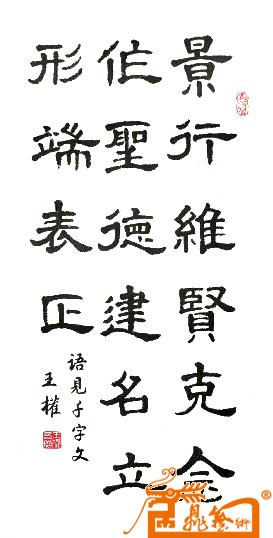 景行維賢克念
作聖德建名立
形端表正
語見千字文
王權